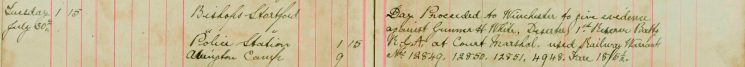 Tuesday 1 15 Bishops-Stortford Day Proceeded to Winchester to give evidence
July 30th " against Gunner H White, Deserter, 1st Reserve Batty
Police Station 1 15 R.G.A. at Court Marshal. used Railway Warrant
Abington Camp 9 Nos 12849. 12850. 12851. 4948. Fare